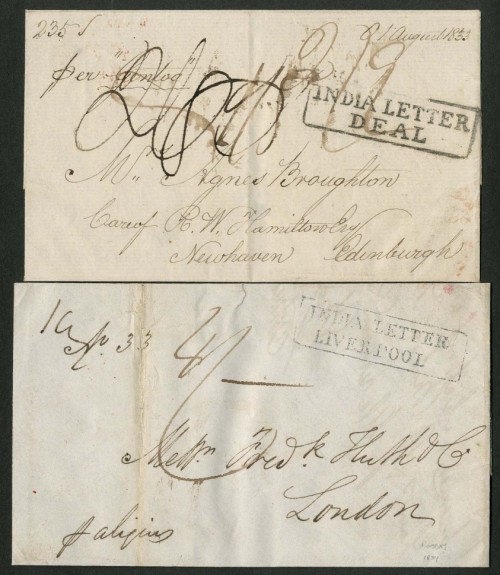 235
21 August 1833
per
INDIA LETTER
DEAL
Mrs Agnes Broughton
Care of R. W. Hamilton Esq
Newhaven Edinburgh
INDIA LETTER
LIVERPOOL
33
4/
Messrs Fredk Huth & Co
London